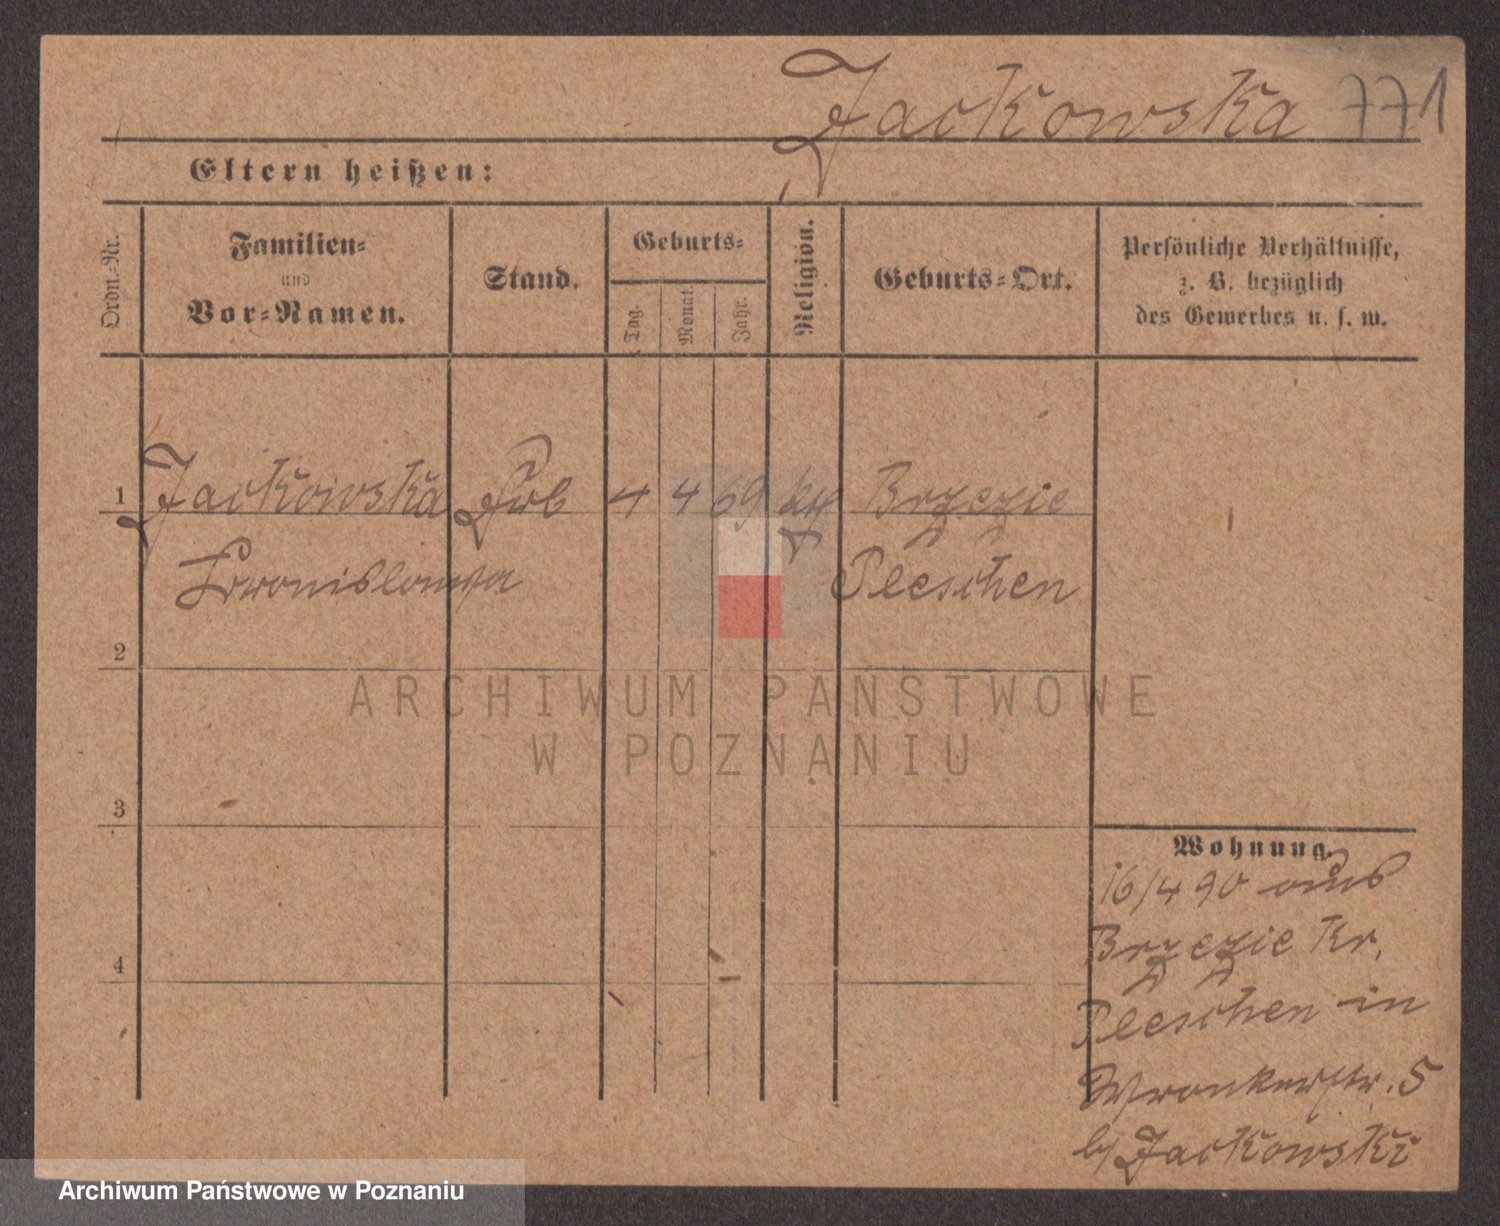 Jackowska 771
Eltern heißen:
Ordn.-Nr.
Familien-
und
Vor-Namen.
Stand.
Geburts-
Tag.
Monat.
Jahr.
Religion.
Geburts-Ort.
Persönliche Verhältnisse,
z. B. bezüglich
des Gewerbes u. s. w.
1 Jackowska 4 4 69 Brzezie
Bronislawa Pleschen
2
ARCHIWUM PAŃSTWOWE
W POZNANIU
3
Wohnung.
16/4 90 aus
4 Brzezie Kr.
Pleschen in
Wronkerstr. 5
b/ Jackowski
Archiwum Państwowe w Poznaniu